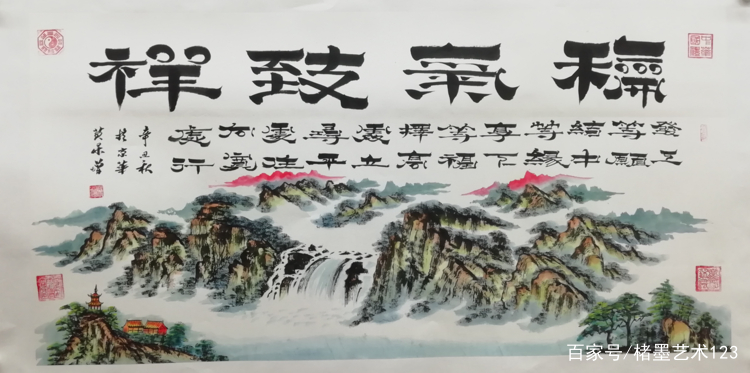 龢氣致祥
發上
等願
結中
等緣
享下
等福
擇高
處立
尋平
處住
向寬
處行
辛丑秋
於京華
百家号/楮墨艺术123